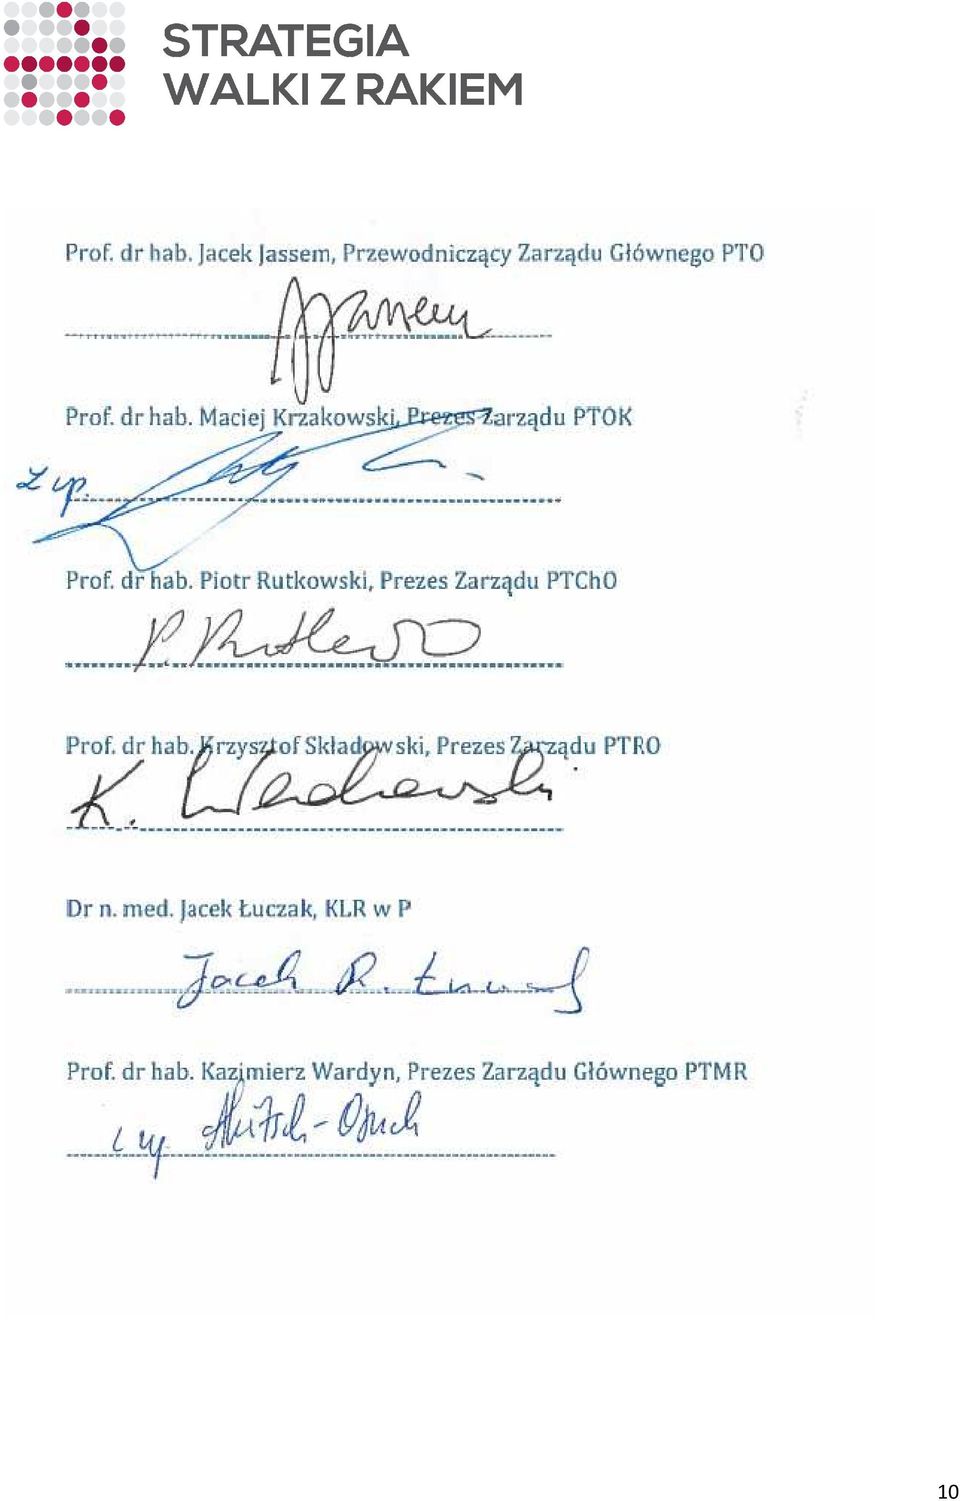 STRATEGIA
WALKI Z RAKIEM
Prof. dr hab. Jacek Jassem, Przewodniczący Zarządu Głównego PTO
Prof. dr hab. Maciej Krzakowski, Prezes Zarządu PTOK
Z up.
Prof. dr hab. Piotr Rutkowski, Prezes Zarządu PTChO
Prof. dr hab. Krzysztof Składowski, Prezes Zarządu PTRO
Dr n. med. Jacek Łuczak, KLR w P
Prof. dr hab. Kazimierz Wardyn, Prezes Zarządu Głównego PTMR
10